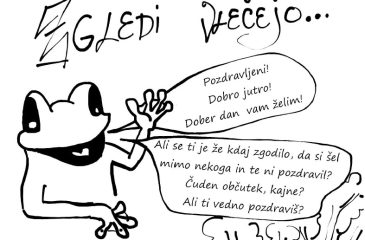 Zgledi vlečejo...
Pozdravljeni!
Dobro jutro!
Dober dan vam želim!
Ali se ti je že kdaj zgodilo, da si šel
mimo nekoga in te ni pozdravil?
Čuden občutek, kajne?
Ali ti vedno pozdraviš?